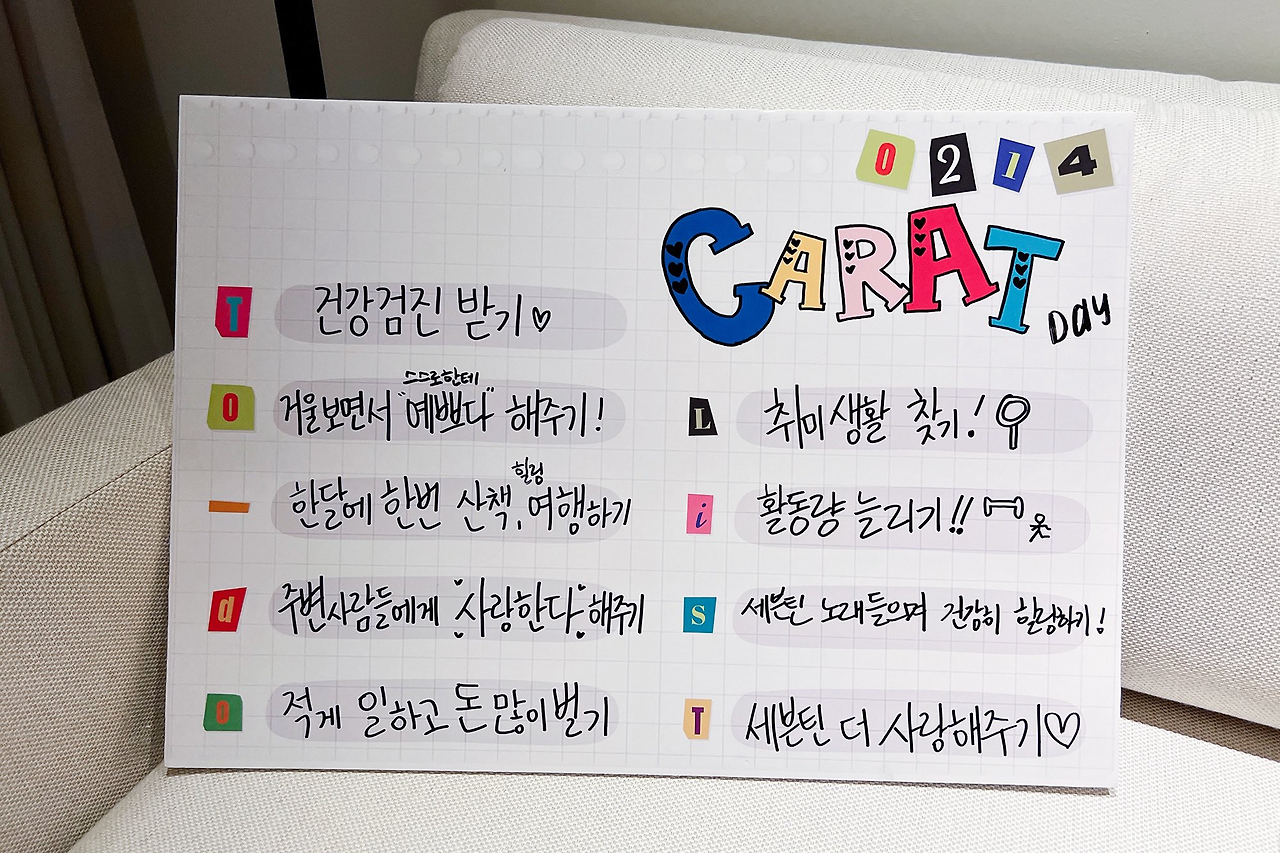 0214
CARAT
Day
T 건강검진 받기♡
스스로한테
O 거울보면서 "예쁘다" 해주기!
힐링
- 한달에 한번 산책, 여행하기
d 주변사람들에게 사랑한다 해주기
O 적게 일하고 돈 많이벌기
L 취미생활 찾기!
i 활동량 늘리기!!
S 세븐틴 노래들으며 건강히 힐링하기!
T 세븐틴 더 사랑해주기♡